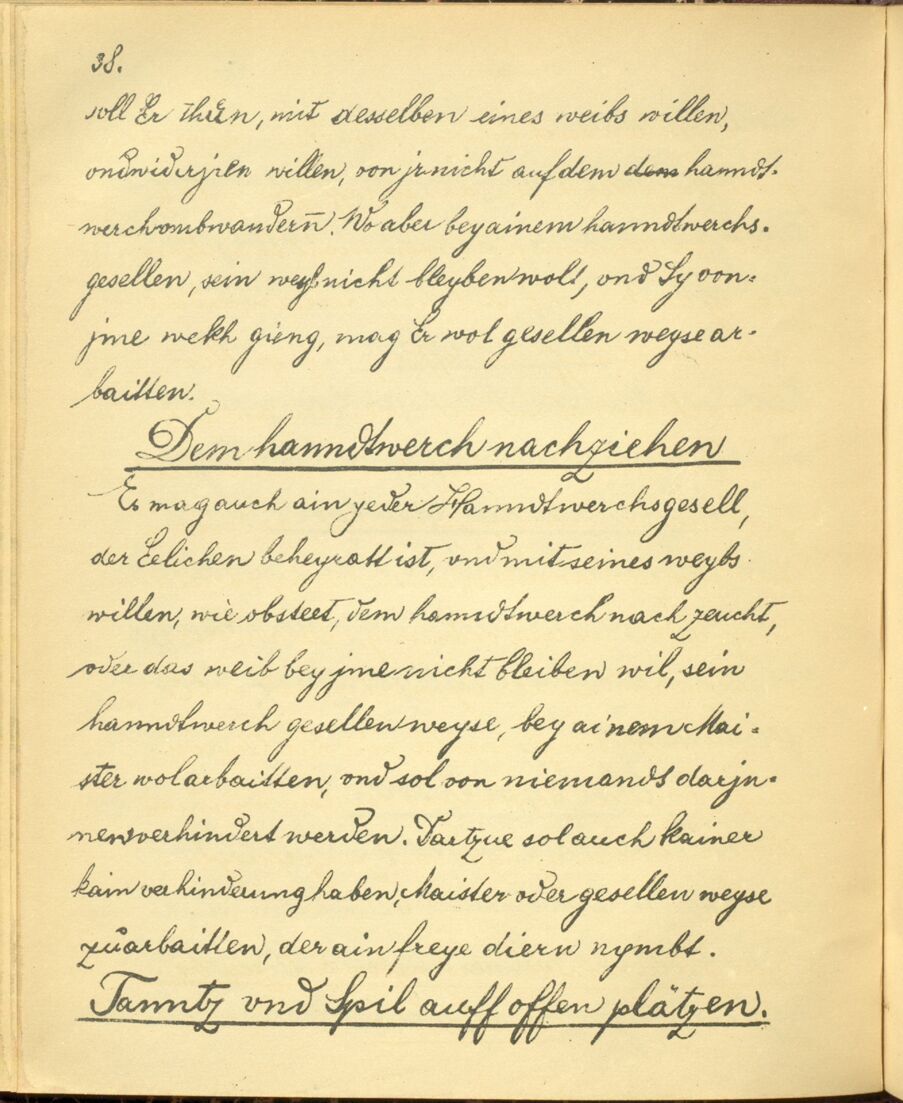 38.
soll Er thuen, mit desselben eines weibs willen,
vnd wider jren willen, von jr nicht auf dem dem hanndt-
werch vmbwandern̄. Wo aber bey ainem hanndtwerchs-
gesellen, sein weyb nicht bleyben wolt, vnd Sy von-
jme wekh gieng, mag Er wol gesellen weyse ar-
baitten.
Dem hanndtwerch nachziehen
Es mag auch ain yeder Hanndtwerchsgesell,
der Eelichen beheyratt ist, vnd mit seines weybs
willen, wie obsteet, dem hanndtwerch nach zeucht,
oder das weib bey jme nicht bleiben wil, sein
hanndtwerch gesellen weyse, bey ainem Mai-
ster wol arbaitten, vnd sol von niemands darjn-
nen verhindert werden. Dartzue sol auch kainer
kain verhinderung haben, Maister oder gesellen weyse
zůarbaitten, der ain freye diern nymbt.
Tanntz vnd Spil auff offen plätzen.